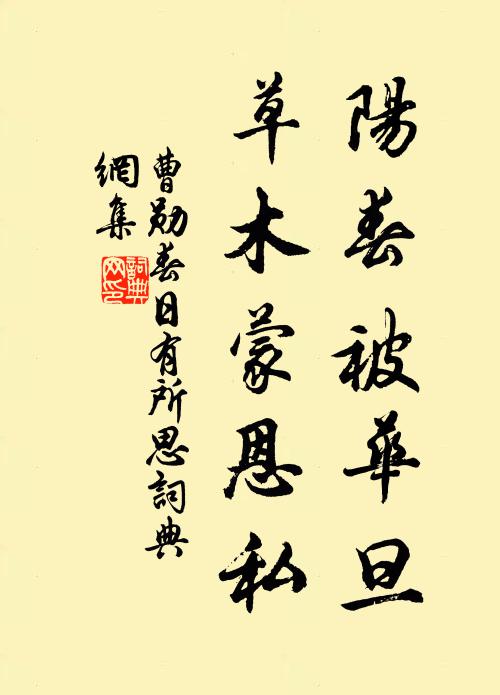 陽春被華旦
草木蒙恩私
曹勛春日有所思詞典
網集
詞典網印